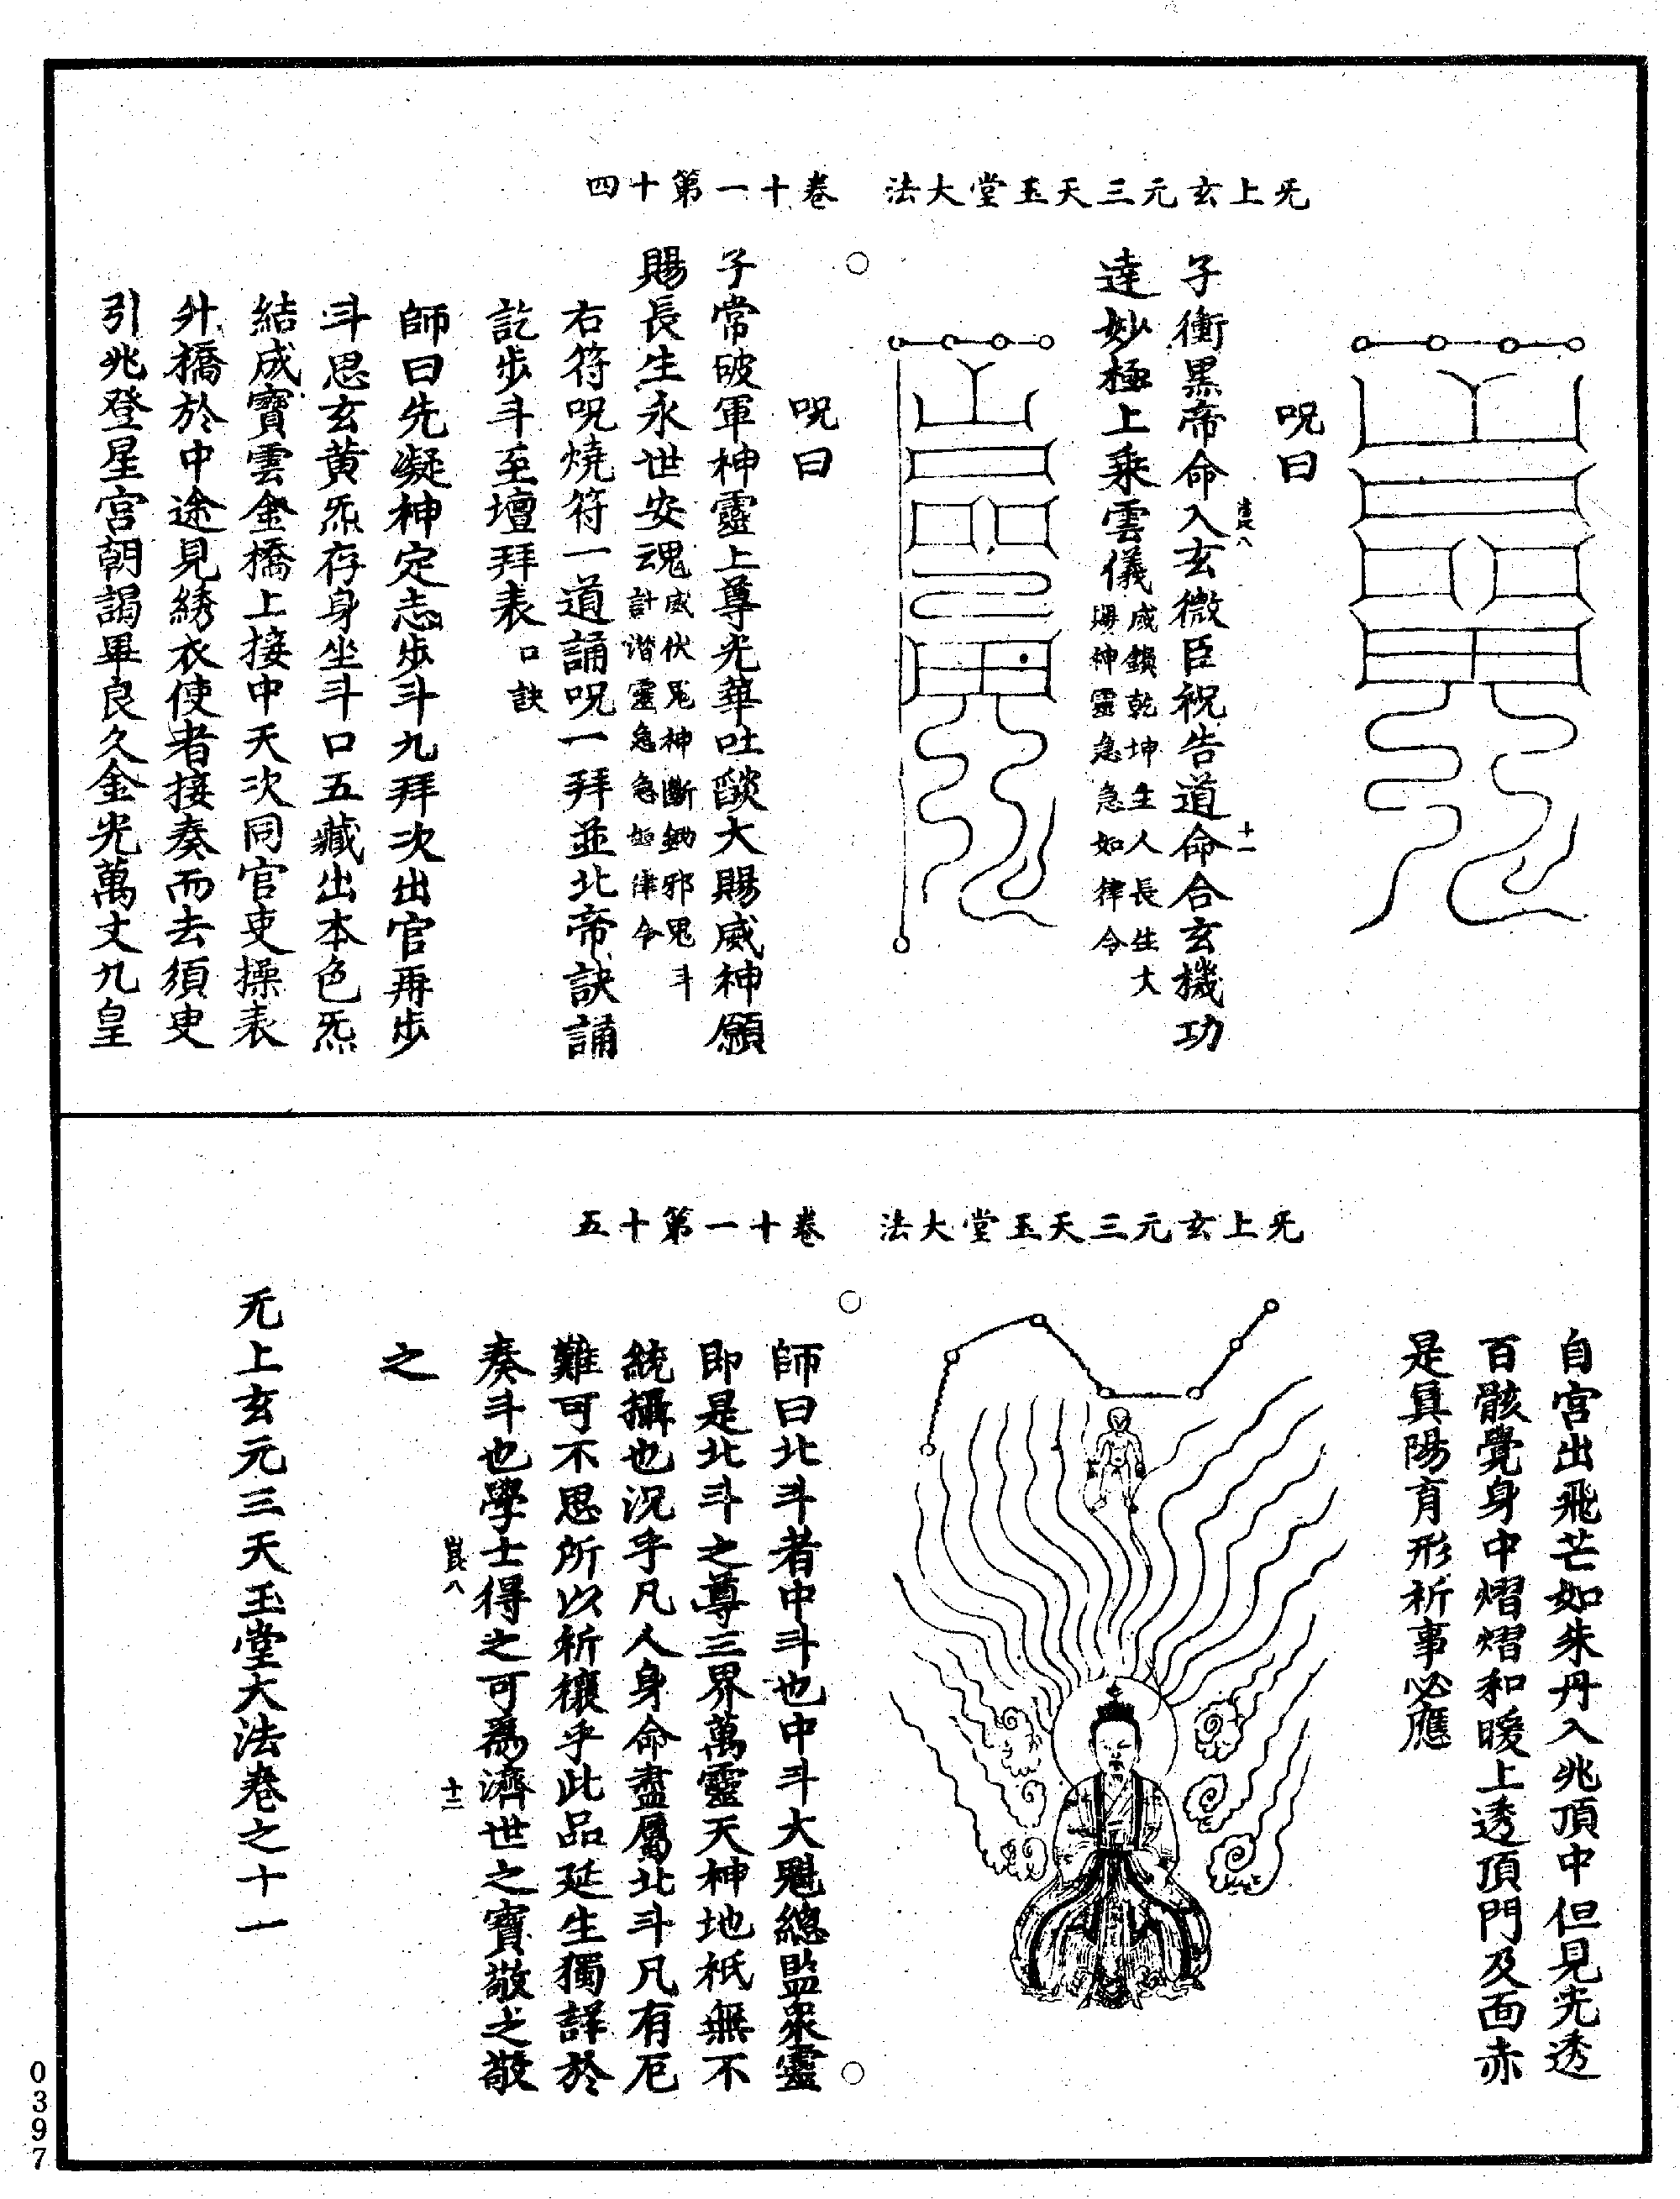 无上玄元三天玉堂大法　卷十一第十四
呪曰
子衝黑帝命入玄微臣祝告道命合玄機功
達妙極上乘雲儀威鎖乾坤生人長生大
場神靈急急如律令
崑八
十一
呪曰
子常破軍神靈上尊光華吐燄大賜威神願
賜長生永世安魂威伏鬼神斷勦邪鬼斗
計諧靈急急如律令
右符呪燒符一道誦呪一拜並北帝訣誦
訖步斗至壇拜表口訣
師曰先凝神定志步斗九拜次出官再步
斗思玄黃炁存身坐斗口五藏出本色炁
結成寶雲金橋上接中天次同官吏操表
升橋於中途見綉衣使者接奏而去須臾
引兆登星宮朝謁畢良久金光萬丈九皇
无上玄元三天玉堂大法　卷十一第十五
自宮出飛芒如朱丹入兆頂中但見光透
百骸覺身中熠熠和暖上透頂門及面赤
是真陽育形祈事必應
師曰北斗者中斗也中斗大魁總監衆靈
即是北斗之尊三界萬靈天神地祇無不
統攝也況乎凡人身命盡屬北斗凡有厄
難可不思所以祈禳乎此品延生獨詳於
奏斗也學士得之可爲濟世之寶敬之敬
崑八
十二
之
无上玄元三天玉堂大法卷之十一
0397